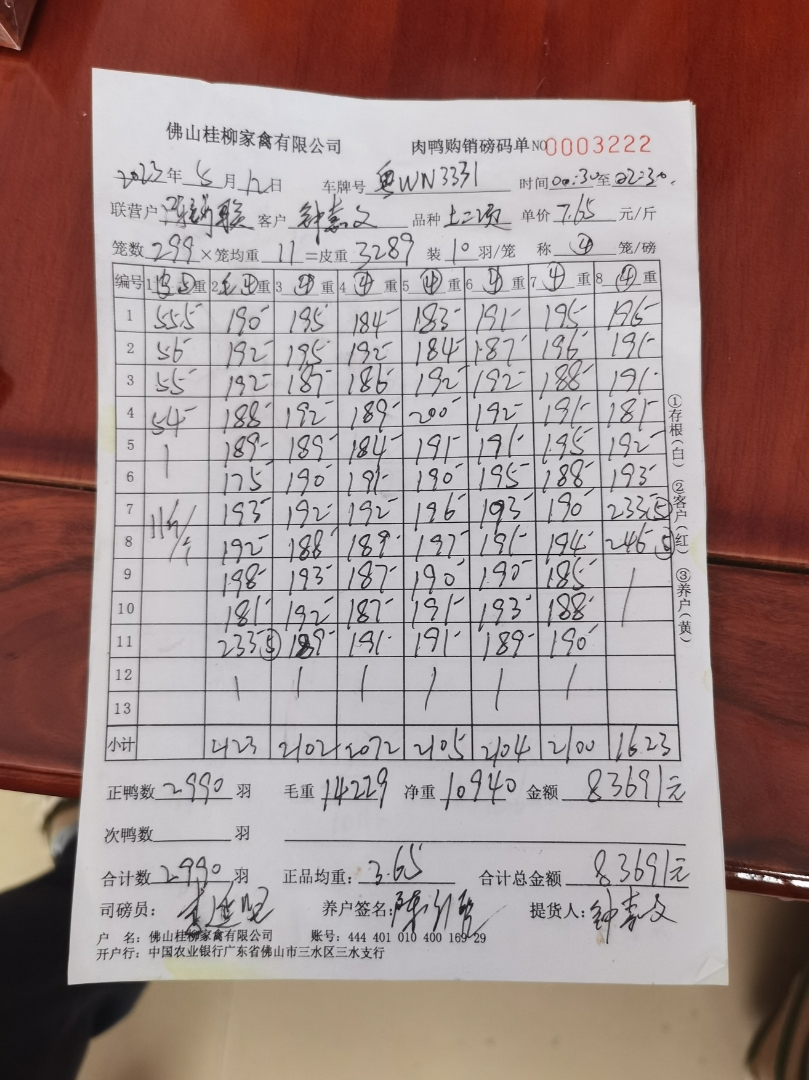 佛山桂柳家禽有限公司 肉鸭购销磅码单 NO 0003222
2023年 5月 12日 车牌号 粤WN3331 时间 00:30至 02:30.
联营户 客户 钟嘉文 品种 土二项 单价 7.65 元/斤
笼数 299 ×笼均重 11 =皮重 3289 装 10 羽/笼 称 ④ 笼/磅
编号 1 ⑤重 2 毛④重 3 ④重 4 ④重 5 ④重 6 ④重 7 ④重 8 ④重
1 555 190 195 184 183 191 195 195
2 56 192 195 192 184 187 196 191
3 55 192 187 186 192 192 188 191
4 54 188 192 189 200 192 191 181
5 189 189 184 191 191 195 192
6 175 190 191 190 195 188 193
7 11斤/个 193 192 192 196 193 190 233⑤
8 192 188 189 197 191 194 246⑤
9 198 193 187 190 190 185
10 181 192 187 191 193 188
11 233⑤ 189 191 191 189 190
12
13
小计 2123 2102 2072 2105 2104 2100 1623
①存根(白) ②客户(红) ③养户(黄)
正鸭数 2990 羽 毛重 14229 净重 10940 金额 83691元
次鸭数 羽
合计数 2990 羽 正品均重: 3.65 合计总金额 83691元
司磅员: 养户签名: 提货人: 钟嘉文
户 名: 佛山桂柳家禽有限公司 账号: 444 401 010 400 169 29
开户行: 中国农业银行广东省佛山市三水区三水支行